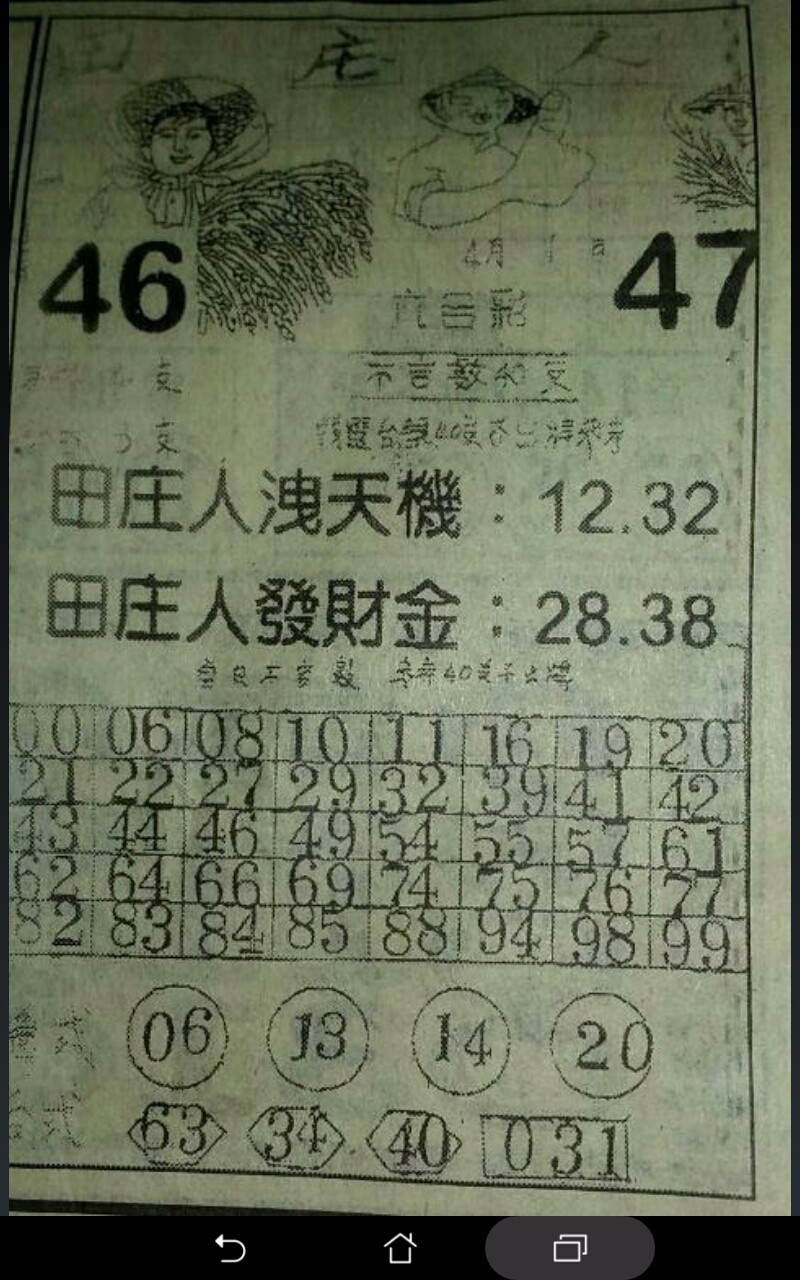 庄 人
46 47
4月 1日
六合彩
支 不言數40支
支
田庄人洩天機：12.32
田庄人發財金：28.38
00 06 08 10 11 16 19 20
21 22 27 29 32 39 41 42
43 44 46 49 54 55 57 61
62 64 66 69 74 75 76 77
82 83 84 85 88 94 98 99
式 06 13 14 20
式 63 34 40 031